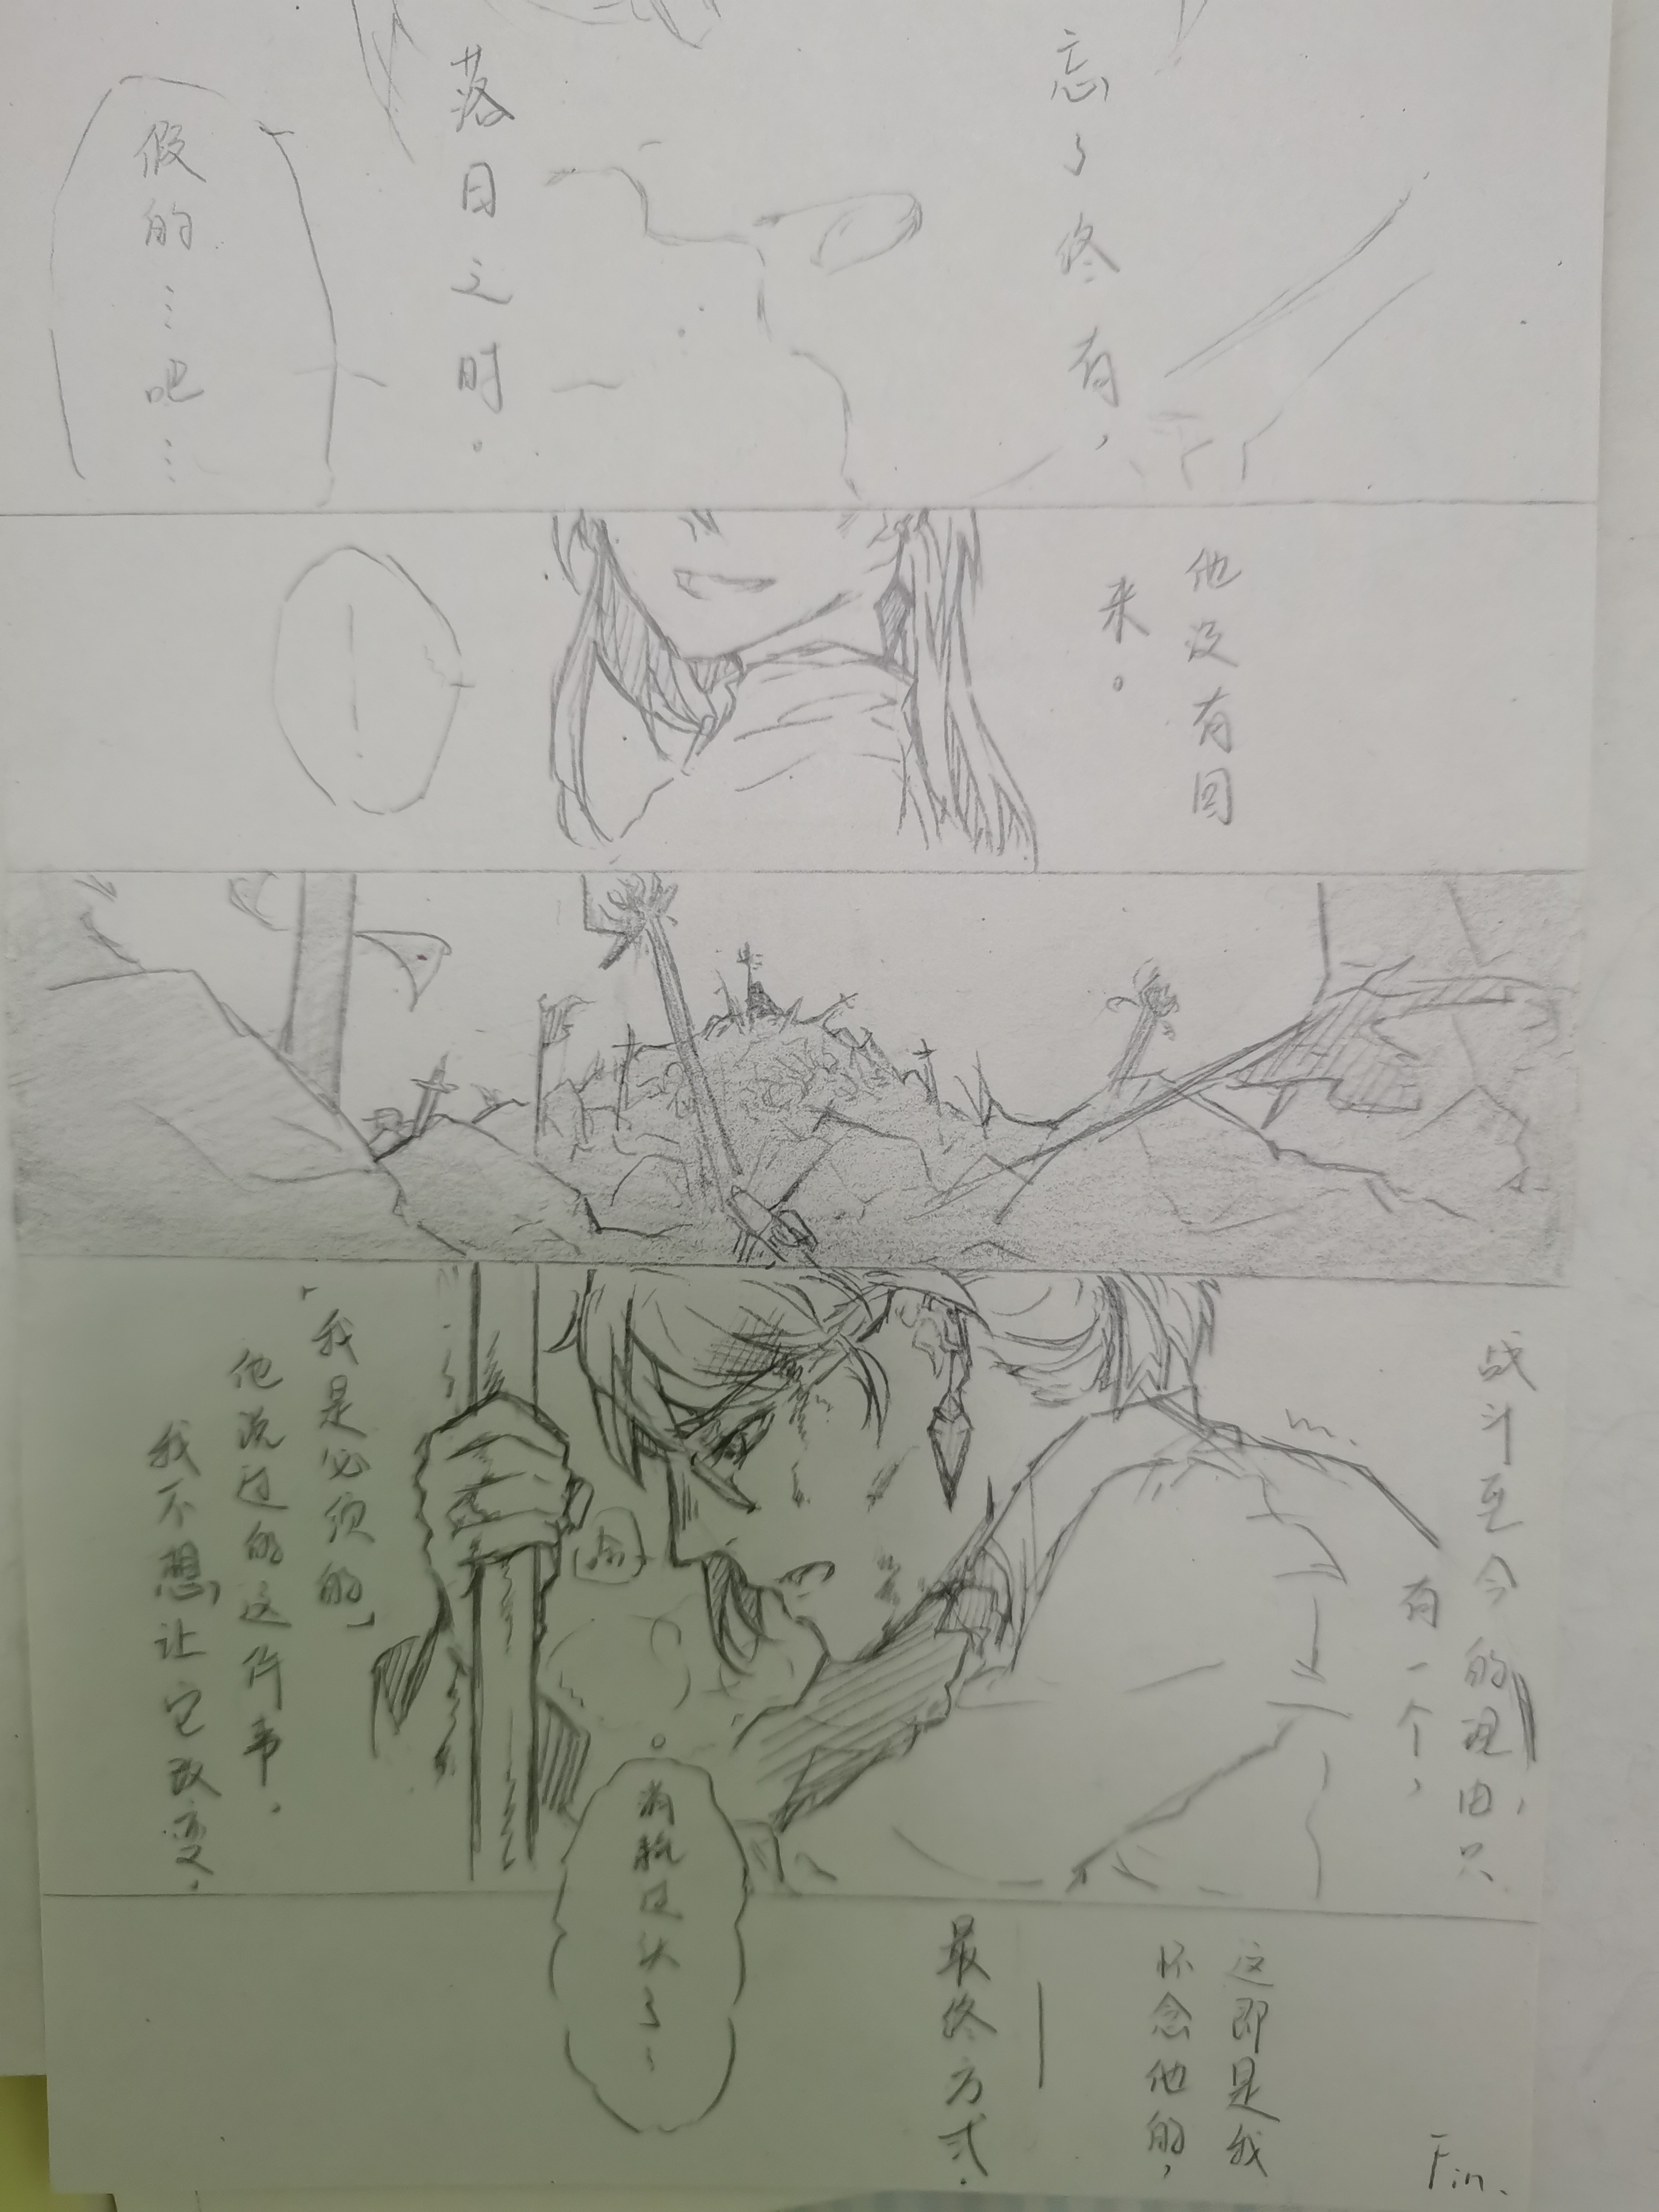 忘了终有，
落日之时。
假的……吧……
他没有回
来。
战斗至今的理由，只
有一个，
「我是必须的」
他说过的这件事。
我不想让它改变。
这即是我
怀念他的，
——最终方式.
Fin.